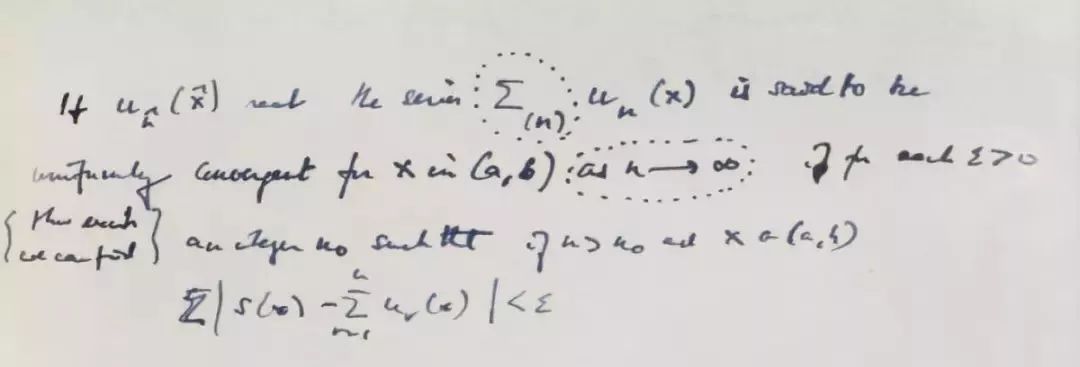 If uₙ(x) real the series Σ₍ₙ₎ uₙ(x) is said to be
uniformly convergent for x in (a, b) as n → ∞ if for each ε > 0
{there exists / we can find} an integer n₀ such tht if n > n₀ and x in (a, b)
| s(x) - Σ uᵣ(x) | < ε